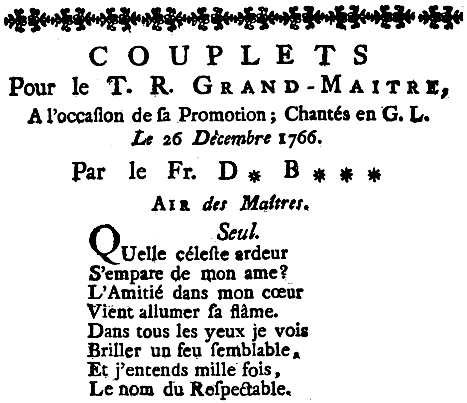 COUPLETS
Pour le T. R. GRAND-MAITRE,
A l'occasion de sa Promotion; Chantés en G. L.
Le 26 Dècembre 1766.
Par le Fr. D * B * * *
AIR des Maîtres.
Seul.
QUelle céleste ardeur
S'empare de mon ame?
L'Amitié dans mon cœur
Vient allumer sa flâme.
Dans tous les yeux je vois
Briller un feu semblable,
Et j'entends mille fois,
Le nom du Respectable.